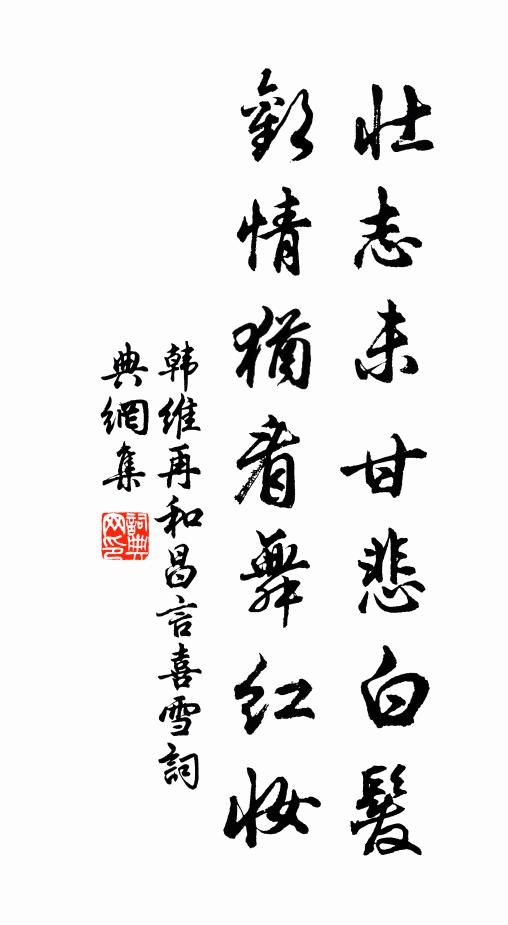 壮志未甘悲白髮
歡情猶看舞紅妆
韩維再和昌言喜雪詞
典網集
詞典网印